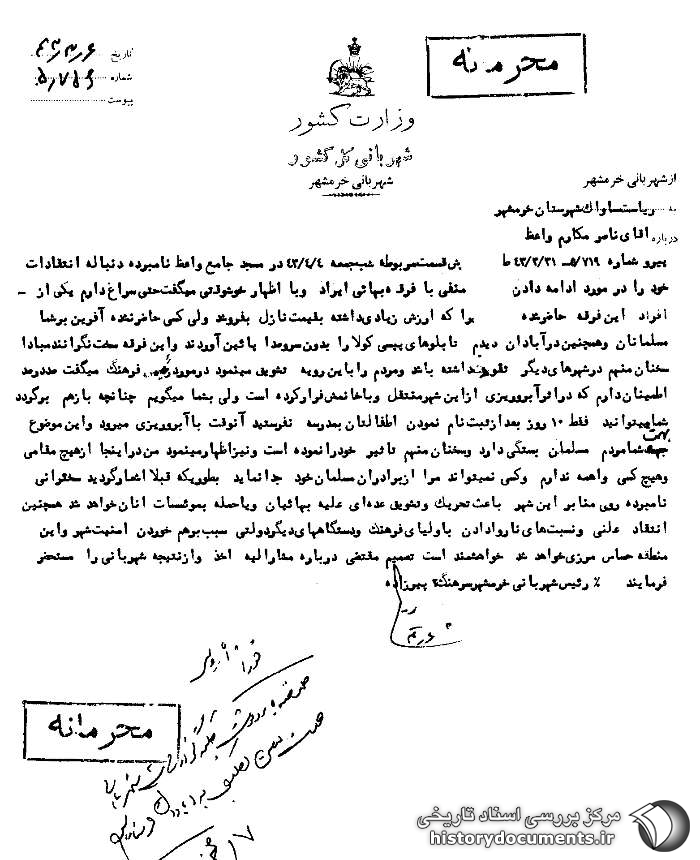 محرمانه
تاریخ
شماره
پیوست
وزارت کشور
شهربانی کل کشور
شهربانی خرمشهر
از شهربانی خرمشهر
به ریاست ساواك شهرستان خرمشهر
درباره اقای ناصر مکارم واعظ
پیرو شماره ۵/۷۱۹ـ ۴۳/۳/۳۱ ط بش قسمت مربوطه شب جمعه ۴۳/۴/۴ در مسجد جامع واعظ نامبرده دنباله انتقادات
خود را در مورد ادامه دادن منفی با فرقه بهائی ایراد وبا اظهار خوشوقتی میگفت حتی سراغ دارم یکی از ـ
افراد این فرقه حاضرشده را که ارزش زیادی داشته بقیمت نازل بفروشد ولی کسی حاضرنشده آفرین برشما
مسلمانان وهمچنین درآبادان دیدم تابلوهای پپسی کولا را بدون سروصدا پائین آوردند واین فرقه سخت نگرانند مبادا
سخنان منهم درشهرهای دیگر نفوذ داشته باشد ومردم را باین رویه تشویق مینمود درمورد رئیس فرهنگ میگفت صددرصد
اطمینان دارم که دراثر آبروریزی از این شهر منتقل وباخانمش فرار کرده است ولی بشما میگویم چنانچه بازهم برگردد
شما میتوانید فقط ۱۰ روز بعد از ثبت نام نمودن اطفالتان بمدرسه نفرستید آنوقت با آبروریزی میرود واین موضوع
بهمت شما مردم مسلمان بستگی دارد وسخنان منهم تاثیر خود را نموده است ونیز اظهار مینمود من در اینجا از هیچ مقامی
وهیچ کسی واهمه ندارم وکسی نمیتواند مرا از برادران مسلمان خود جدا نماید بطوریکه قبلا اشعار گردید سخنرانی
نامبرده روی منابر این شهر باعث تحریك وتشویق عده‌ای علیه بهائیان ویاحمله بموئسسات انان خواهد شد همچنین
انتقاد علنی ونسبت‌های ناروا دادن باولیای فرهنك ودستگاههای دیگر دولتی سبب برهم خوردن امنیت شهر واین
منطقه حساس مرزی خواهد شد خواهشمند است تصمیم مقتضی درباره مشارالیه اخذ وازنتیجه شهربانی را مستحضر
فرمایند ٪ رئیس شهربانی خرمشهر سرهنگ۲ پیرزاده
محرمانه
مرکز بررسی اسناد تاریخی
historydocuments.ir